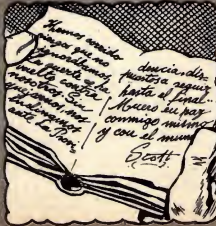 Hemos corrido
riesgos que no
ignorábamos.
La suerte se ha
vuelto contra
nosotros. Sin
quejarnos, nos
ante la Prov
idencia, dis
puestos a seguir
hasta el final.
Muero en paz
conmigo mismo
y con el mundo
Scott